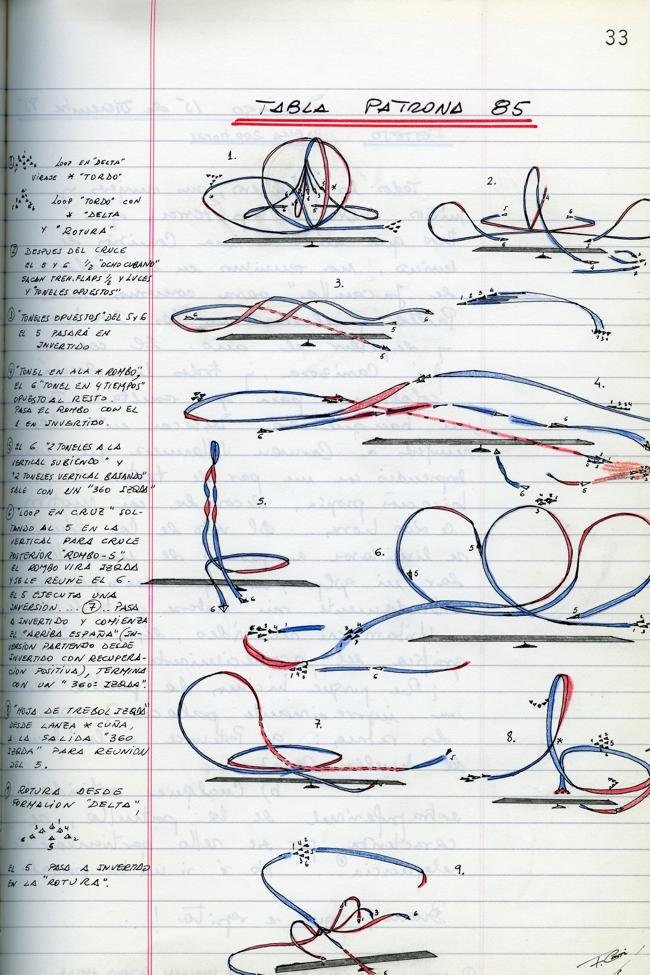 33
TABLA PATRONA 85
① LOOP EN "DELTA"
VIRAJE * "TORDO"
LOOP "TORDO" CON
* "DELTA
Y "ROTURA"
② DESPUES DEL CRUCE
EL 5 Y 6 ½ "OCHO CUBANO"
SACAN TREN, FLAPS ½ Y LUCES
Y "TONELES OPUESTOS"
③ "TONELES OPUESTOS" DEL 5 Y 6
EL 5 PASARÁ EN
INVERTIDO
④ "TONEL EN ALA * ROMBO",
EL 6 "TONEL EN 4 TIEMPOS"
OPUESTO AL RESTO.
PASA EL ROMBO CON EL
1 EN INVERTIDO.
⑤ EL 6 "2 TONELES A LA
VERTICAL SUBIENDO" Y
"2 TONELES VERTICAL BAJANDO"
SALE CON UN "360 IZQDA"
⑥ "LOOP EN CRUZ" SOL-
TANDO AL 5 EN LA
VERTICAL PARA CRUCE
POSTERIOR "ROMBO-5".
EL ROMBO VIRA IZQDA
Y SE LE REUNE EL 6.
EL 5 EJECUTA UNA
INVERSION....⑦.. PASA
A INVERTIDO Y COMIENZA
EL "ARRIBA ESPAÑA" (IN-
VERSION PARTIENDO DESDE
INVERTIDO CON RECUPERA-
CION POSITIVA), TERMINA
CON UN "360º IZQDA".
⑧ "HOJA DE TREBOL IZQDA"
DESDE LANZA * CUÑA,
A LA SALIDA "360
IZQDA" PARA REUNION
DEL 5.
⑨ ROTURA DESDE
FORMACION "DELTA",
EL 5 PASA A INVERTIDO
EN LA "ROTURA".
1.
2.
3.
4.
5.
6.
7.
8.
9.